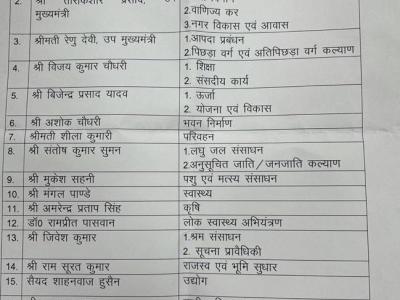 2. श्री तारकिशोर प्रसाद, उप
मुख्यमंत्री
2.वाणिज्य कर
3.नगर विकास एवं आवास
3. श्रीमती रेणु देवी, उप मुख्यमंत्री 1.आपदा प्रबंधन
2.पिछड़ा वर्ग एवं अतिपिछड़ा वर्ग कल्याण
4. श्री विजय कुमार चौधरी 1. शिक्षा
2. संसदीय कार्य
5. श्री बिजेन्द्र प्रसाद यादव 1. ऊर्जा
2. योजना एवं विकास
6. श्री अशोक चौधरी भवन निर्माण
7. श्रीमती शीला कुमारी परिवहन
8. श्री संतोष कुमार सुमन 1.लघु जल संसाधन
2.अनुसूचित जाति/जनजाति कल्याण
9. श्री मुकेश सहनी पशु एवं मत्स्य संसाधन
10. श्री मंगल पाण्डे स्वास्थ्य
11. श्री अमरेन्द्र प्रताप सिंह कृषि
12. डॉ0 रामप्रीत पासवान लोक स्वास्थ्य अभियंत्रण
13. श्री जिवेश कुमार 1.श्रम संसाधन
2. सूचना प्रावैधिकी
14. श्री राम सूरत कुमार राजस्व एवं भूमि सुधार
15. सैयद शाहनवाज हुसैन उद्योग